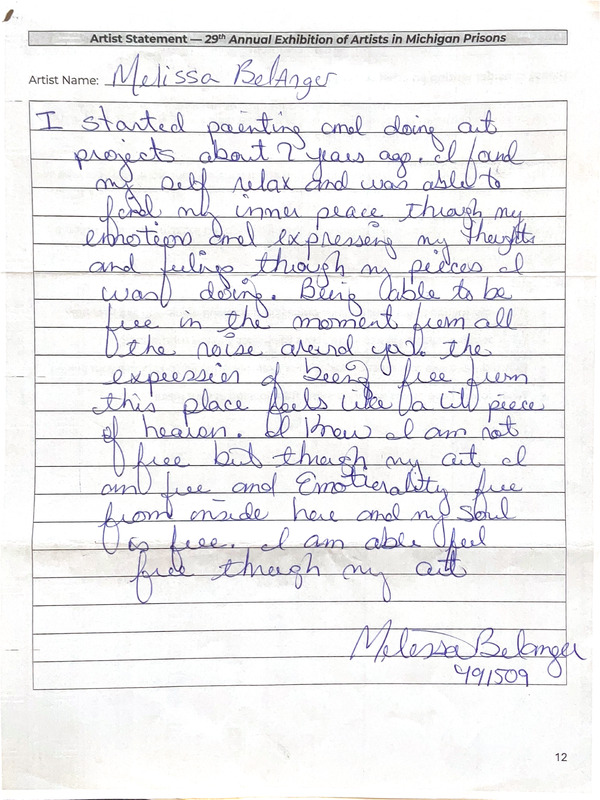 Artist Statement — 29th Annual Exhibition of Artists in Michigan Prisons
Artist Name: Melissa BelAnger
I started painting and doing art
projects about 2 years ago. I found
my self relax and was able to
find my inner peace through my
emotions and expressing my thoughts
and feelings through my pieces I
was doing. Being able to be
free in the moment from all
the noise around you. the
expression of being free from
this place feels like a lil piece
of heaven. I know I am not
free but through my art I
am free and Emotionality free
from inside here and my Soul
is free. I am able feel
free through my art
Melissa Belanger
491509
12